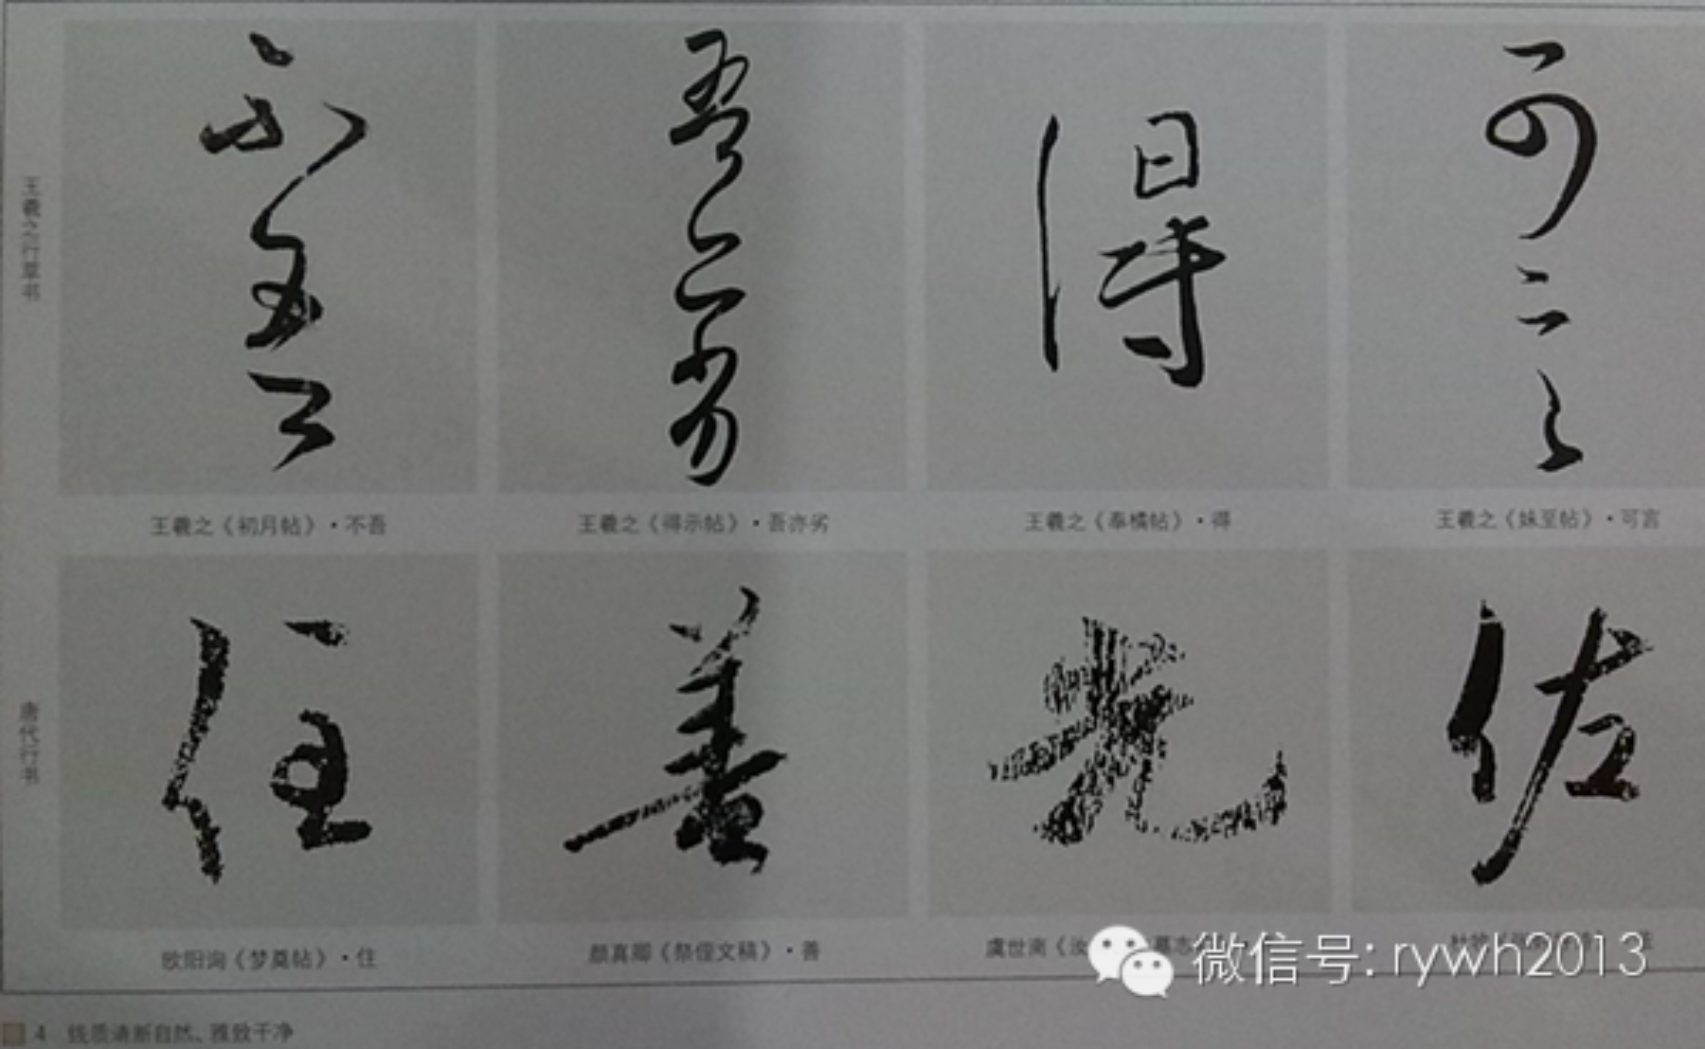 王羲之行草书
不吾
吾亦劣
得
可言
王羲之《初月帖》·不吾
王羲之《得示帖》·吾亦劣
王羲之《奉橘帖》·得
王羲之《妹至帖》·可言
唐代行书
住
善
光
佐
欧阳询《梦奠帖》·住
颜真卿《祭侄文稿》·善
虞世南《汝 墓志
微信号: rywh2013
4 线质清新自然、雅致干净